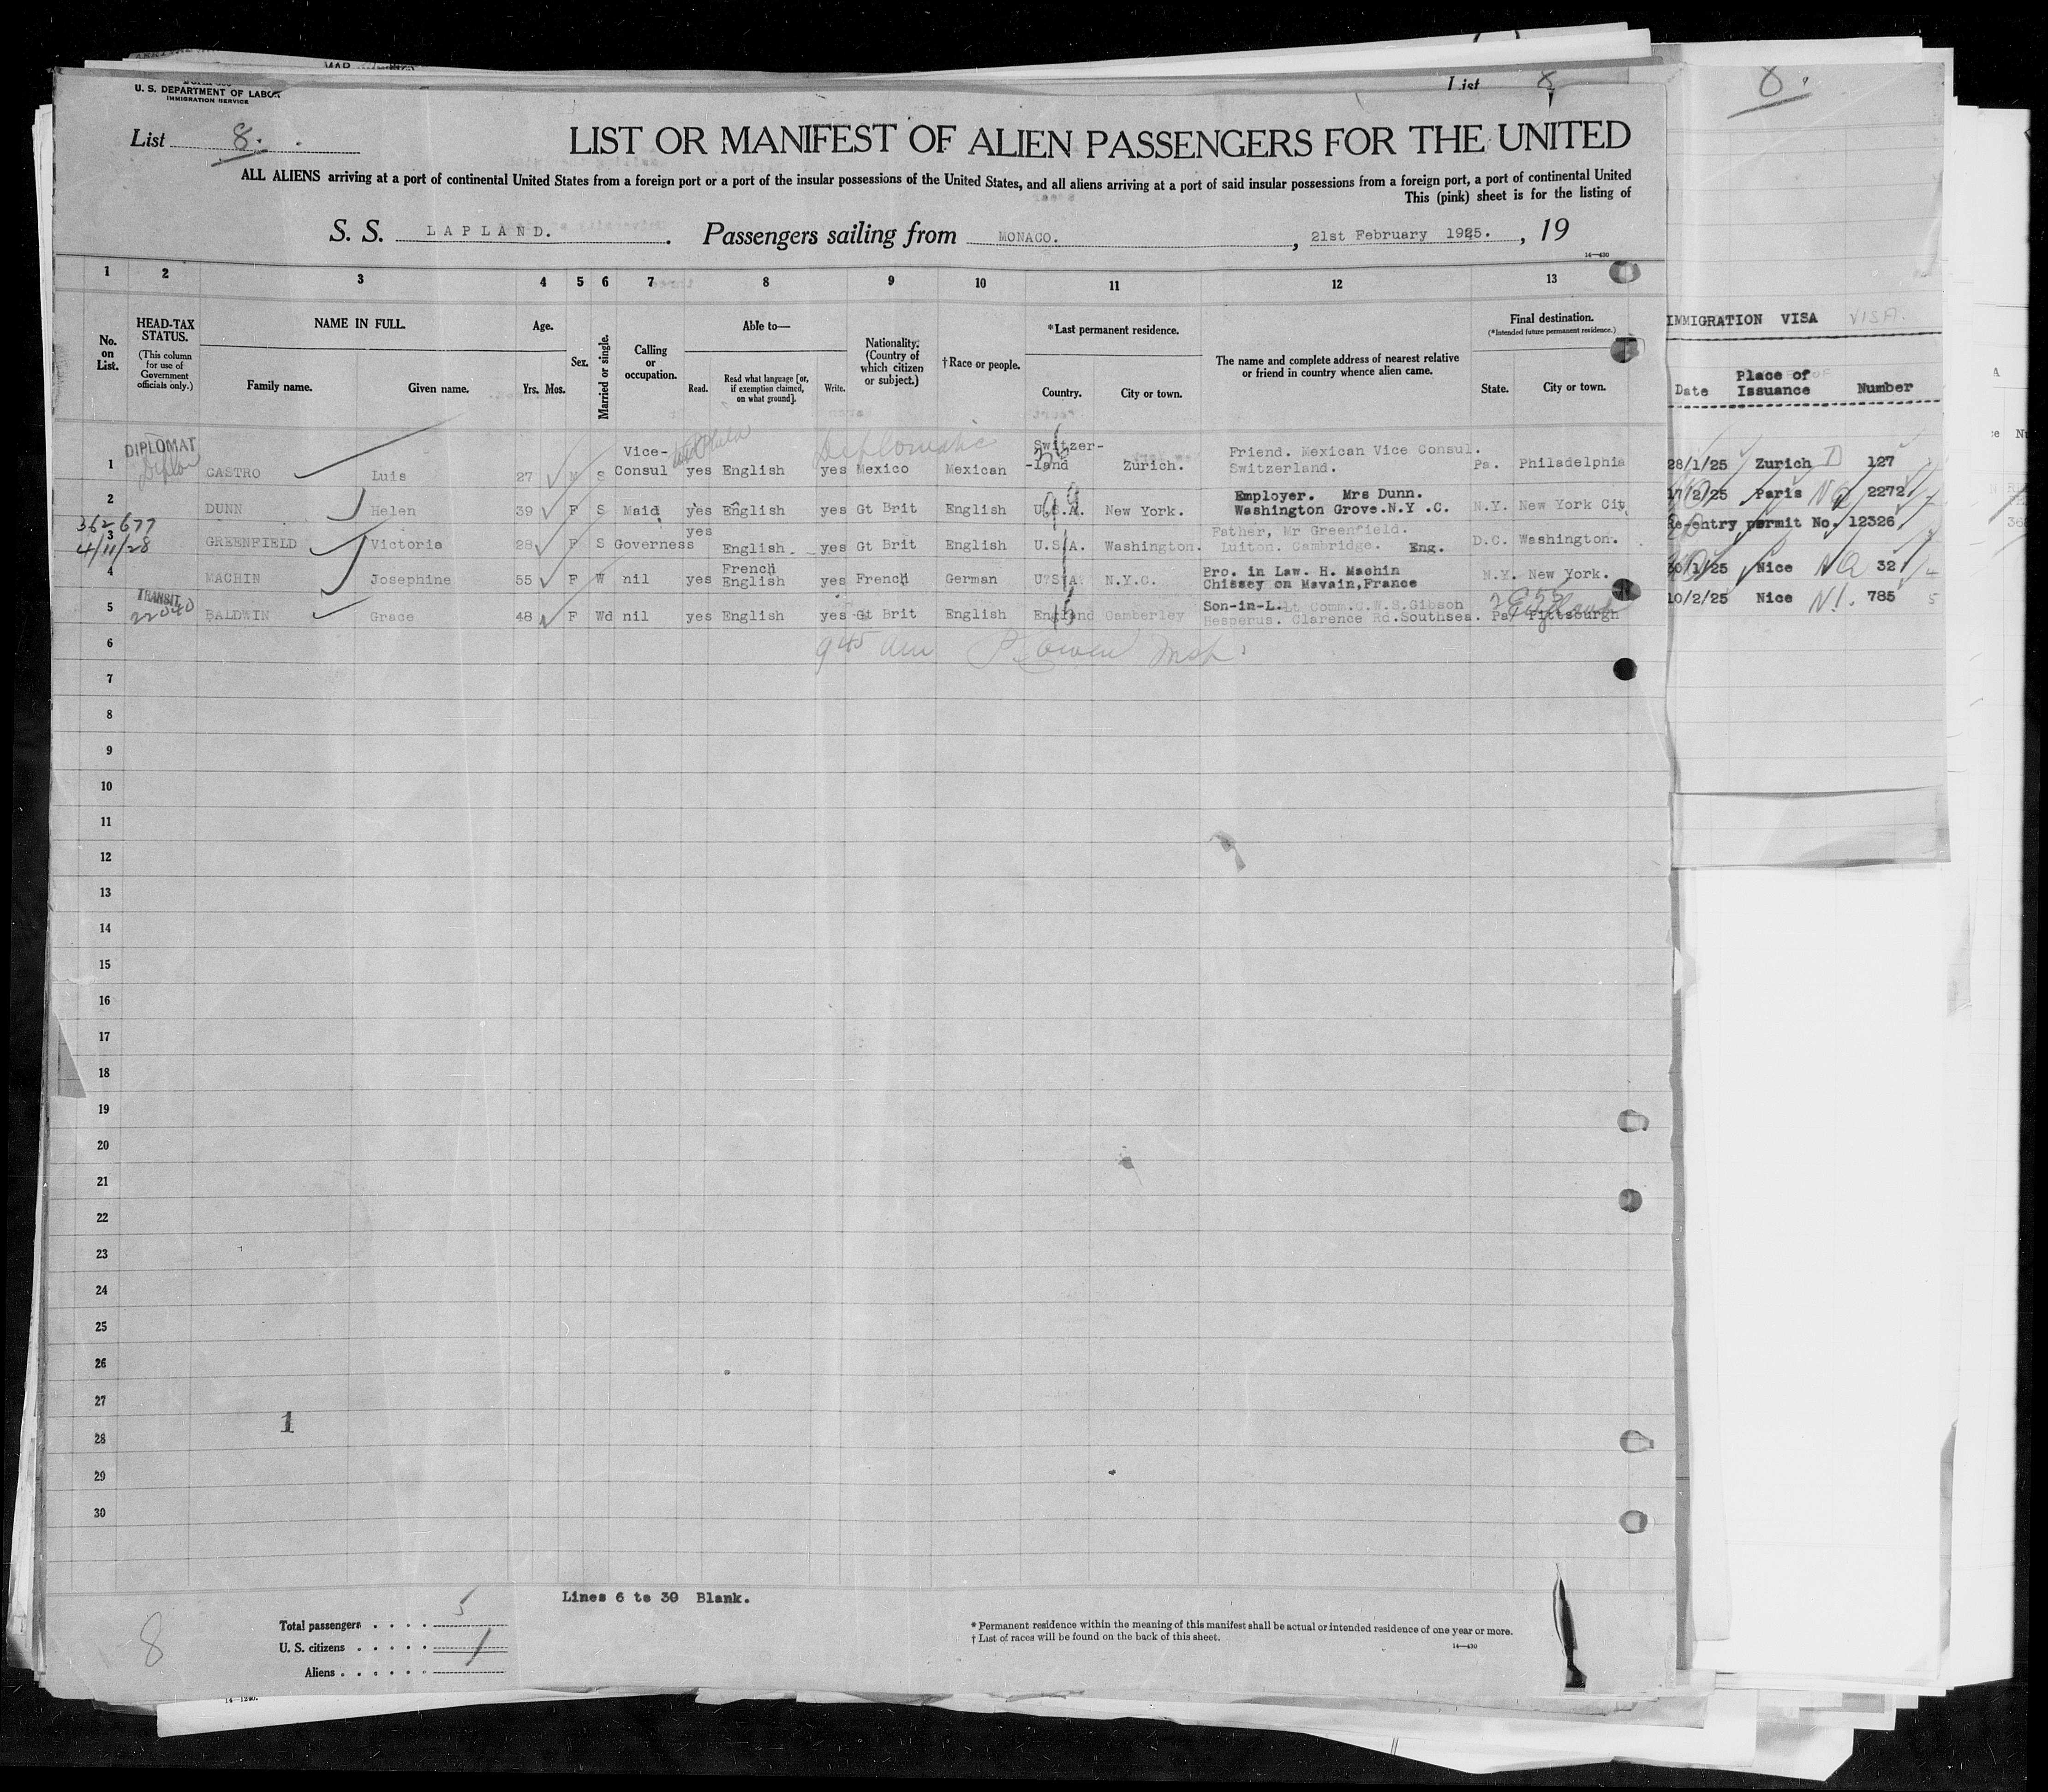 U. S. DEPARTMENT OF LABOR
IMMIGRATION SERVICE
List 8
List 8.
8.
LIST OR MANIFEST OF ALIEN PASSENGERS FOR THE UNITED
ALL ALIENS arriving at a port of continental United States from a foreign port or a port of the insular possessions of the United States, and all aliens arriving at a port of said insular possessions from a foreign port, a port of continental United
This (pink) sheet is for the listing of
S. S. LAPLAND. Passengers sailing from MONACO. , 21st February 1925. , 19
14—430
1 2 3 4 5 6 7 8 9 10 11 12 13
No. on List.
HEAD-TAX STATUS.
(This column for use of Government officials only.)
NAME IN FULL.
Family name. Given name.
Age.
Yrs. Mos.
Sex.
Married or single.
Calling or occupation.
Able to—
Read. Read what language [or, if exemption claimed, on what ground]. Write.
Nationality. (Country of which citizen or subject.)
† Race or people.
*Last permanent residence.
Country. City or town.
The name and complete address of nearest relative or friend in country whence alien came.
Final destination.
(*Intended future permanent residence.)
State. City or town.
IMMIGRATION VISA
Date Place of Issuance Number
1 DIPLOMAT CASTRO Luis 27 M S Vice-Consul yes English yes Mexico Mexican Switzer-land Zurich. Friend. Mexican Vice Consul. Switzerland. Pa. Philadelphia 28/1/25 Zurich D 127
Diplomatic
2 DUNN Helen 39 F S Maid yes English yes Gt Brit English U.S.A. New York. Employer. Mrs Dunn. Washington Grove.N.Y .C. N.Y. New York Cit 17/2/25 Paris 2272
362677
4/11/28
3 GREENFIELD Victoria 28 F S Governess yes English yes Gt Brit English U.S.A. Washington. Father, Mr Greenfield. Luiton. Cambridge. Eng. D.C. Washington. Re-entry permit No. 12326
4 MACHIN Josephine 55 F W nil yes French English yes French German U.S.A. N.Y.C. Bro. in Law. H. Machin Chissey on Mavain,France N.Y. New York. 30/1/25 Nice 32
5 TRANSIT 22040 BALDWIN Grace 48 F Wd nil yes English yes Gt Brit English England Camberley Son-in-L.Lt Comm.C.W.S.Gibson Hesperus. Clarence Rd.Southsea. Pa Pittsburgh 10/2/25 Nice N.I. 785
6 945 am
7
8
9
10
11
12
13
14
15
16
17
18
19
20
21
22
23
24
25
26
27
1
28
29
30
Lines 6 to 30 Blank.
8
Total passengers 5
U. S. citizens
Aliens
* Permanent residence within the meaning of this manifest shall be actual or intended residence of one year or more.
† List of races will be found on the back of this sheet.
14—430
14—1240.